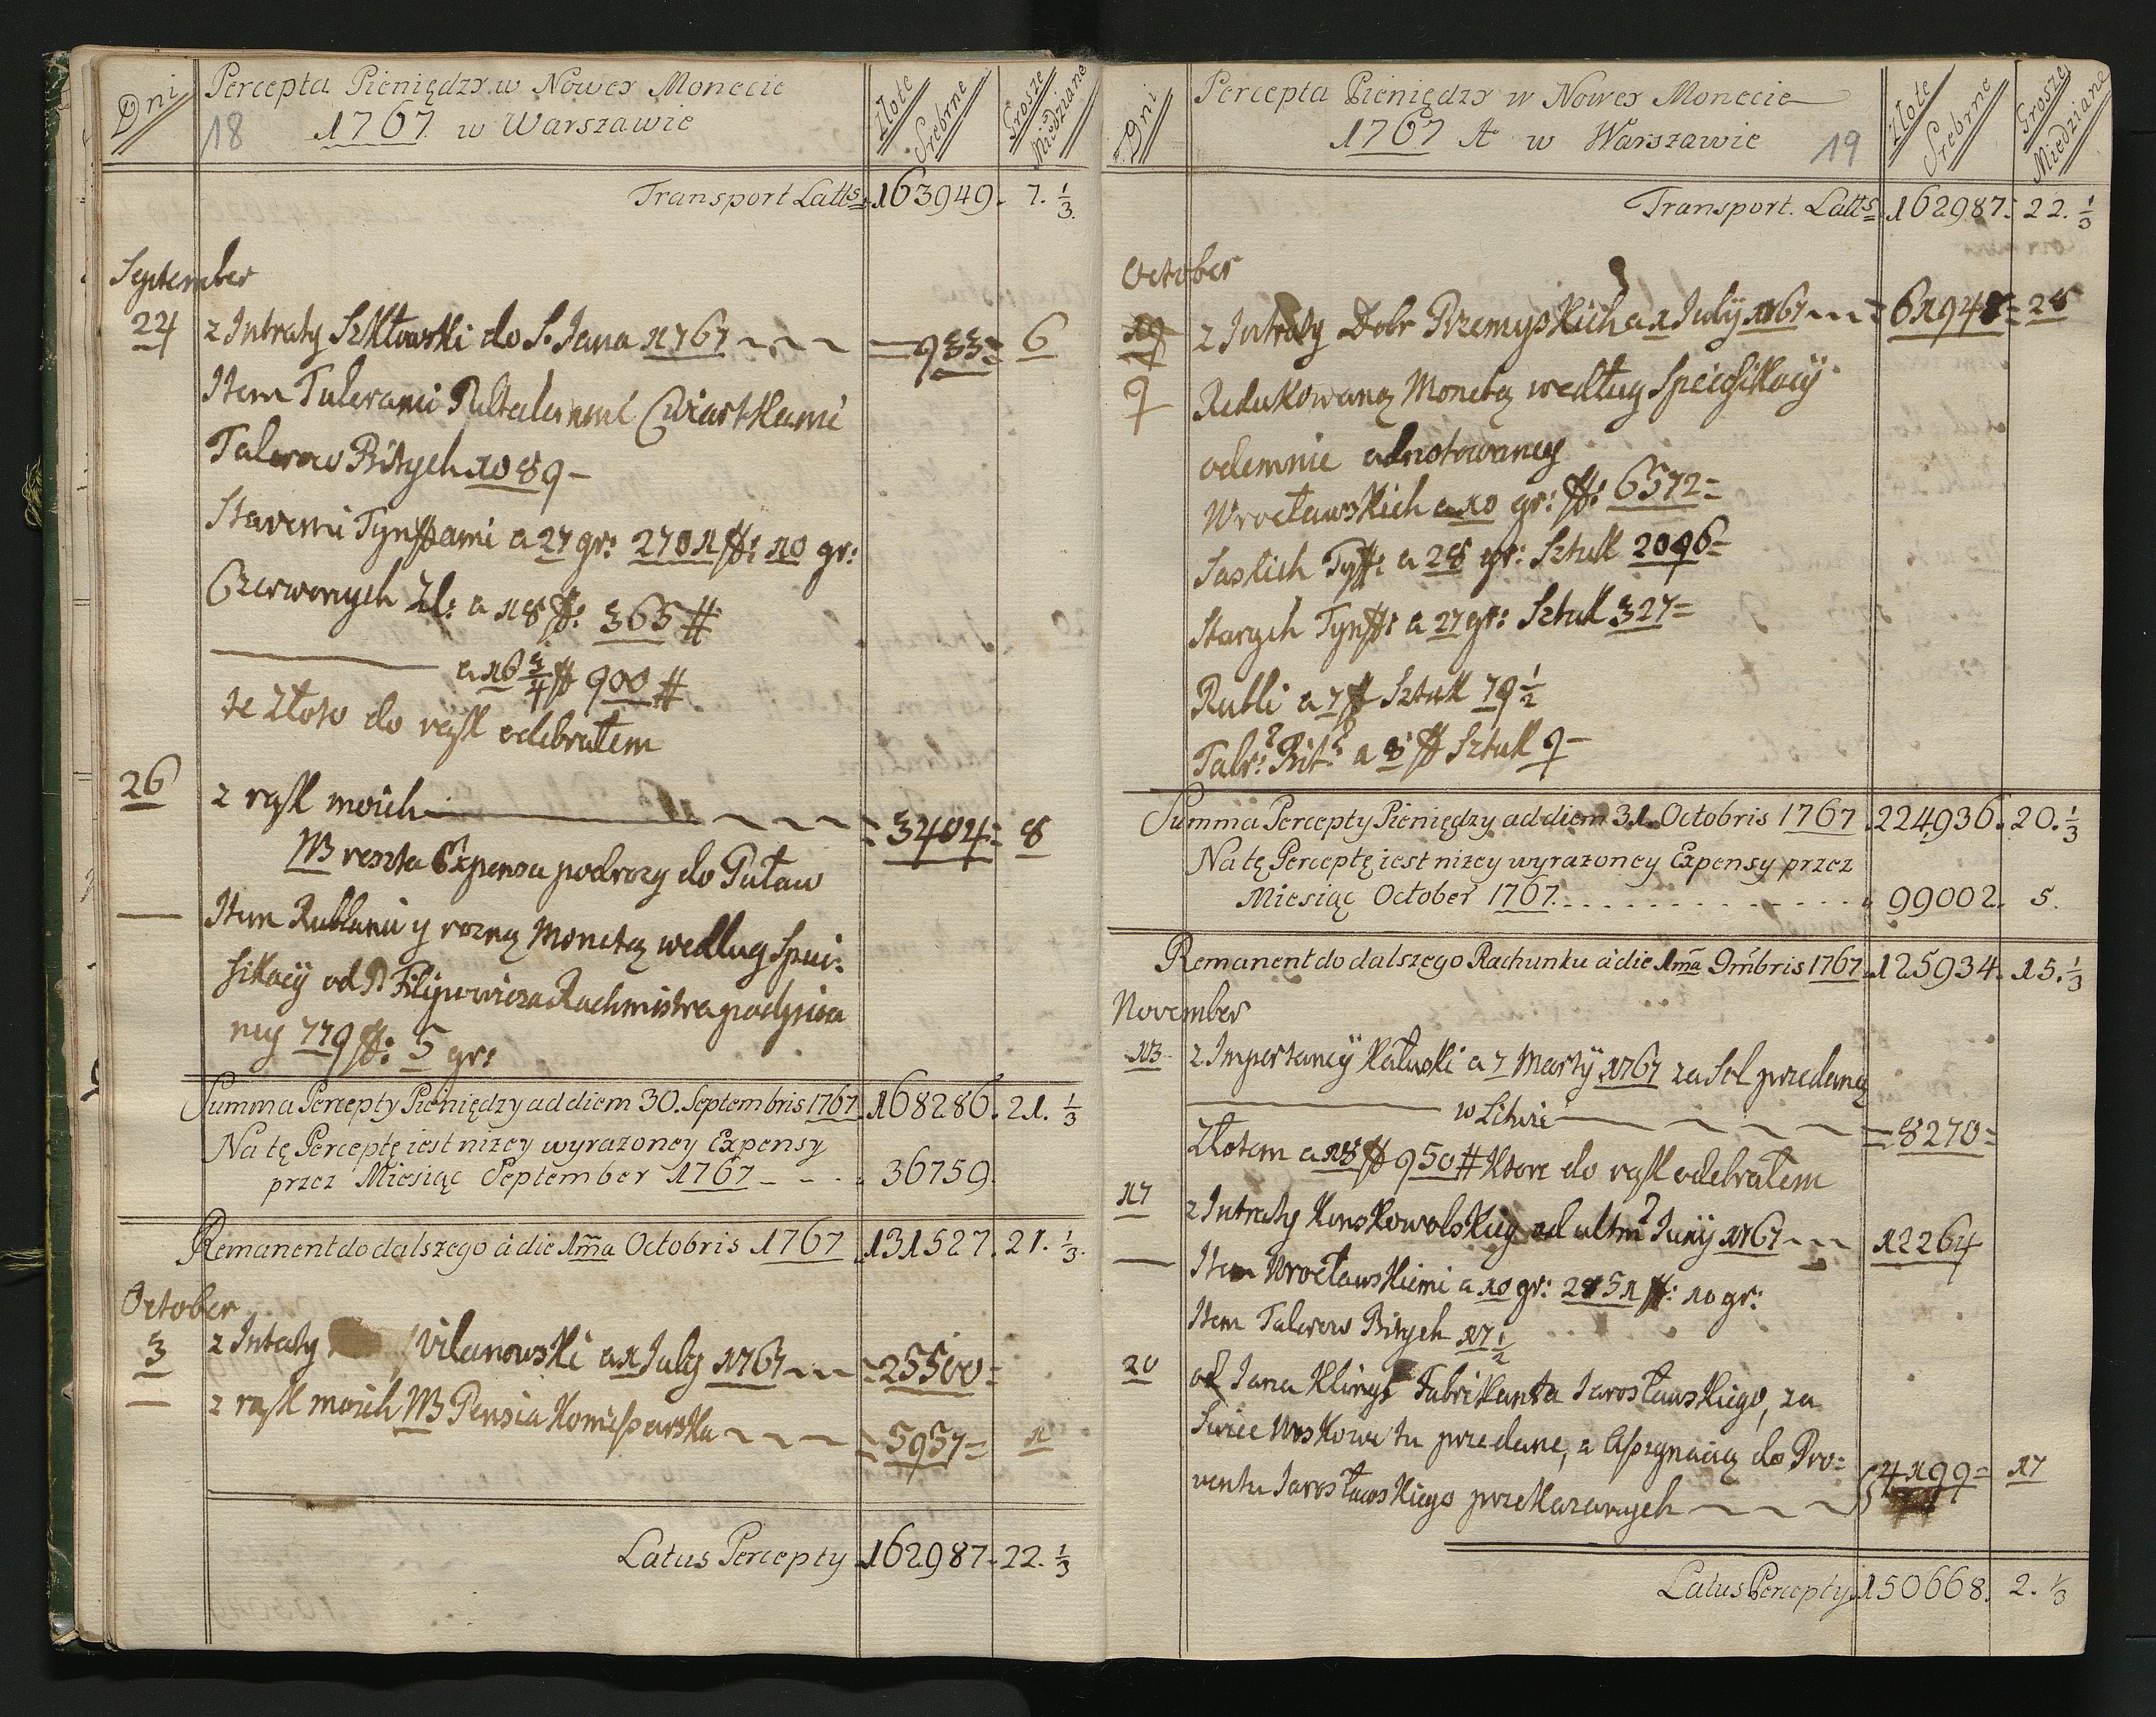 Dni
Percepta Pieniędzy w Nowey Monecie
18 1767 w Warszawie
Złote Srebrne
Grosze Miedziane
Transport Latts 163949. 7. 1/3
September
24 z Intraty Szkłowski do S. Jana 1767 933 = 6
Item Talerami Pultalerami Cwiartkami
Talerow Bitych 1089 —
Staremi Tynffami a 27 gr: 2701 ff: 10 gr:
Czerwonych Zł: a 18 ff: 365 #
a 16 3/4 ff 900 #
te Złoto do rąk odebrałem
26 z rąk moich 3404 = 8
NB reszta Expensa podrozy do Puław
— Item Rublami y rozną Monetą według Speci:
fikacÿ od P Filipowicza Rachmistrza
ney 779 ff: 5 gr:
Summa Percepty Pieniędzy ad diem 30. Septembris 1767 168286. 21. 1/3
Na tę Perceptę iest nizey wyrazoney Expensy
przez Miesiąc September 1767 36759.
Remanent do dalszego à die 1ma Octobris 1767 131527. 21. 1/3.
October
3 z Intraty Wilanowski a 1 July 1767 25500 =
— z rąk moich NB Pensia Komissarska 5957 = 1
Latus Percepty 162987. 22. 1/3
Dni
Percepta Pieniędzy w Nowey Monecie
1767 A w Warszawie 19
Złote Srebrne
Grosze Miedziane
Transport. Latts 162987. 22. 1/3
October
19 z Intraty Dobr Przemyskich a 1 Julÿ 1767 61948 = 28
9 Redukowaną Monetą według Specifikacÿ
odemnie adnotowaney
Wrocławskich a 10 gr: ff: 6572 =
Saskich Tyff: a 28 gr: Sztuk 2096 =
Starych Tynff: a 27 gr: Sztuk 327 =
Rubli a 7 ff Sztuk 79 1/2
Talr: Bit: a 8 ff Sztuk 9 —
Summa Percepty Pieniędzy ad diem 31. Octobris 1767 224936. 20. 1/3
Na tę Perceptę iest nizey wyrazoney Expensy przez
Miesiąc October 1767. 99002. 5.
Remanent do dalszego Rachunku à die 1ma 9mbris 1767 125934. 15. 1/3
November
13 z Importancÿ Kałuski a 7 Martÿ 1767 za Sol przedaną
w Litwie 8270 =
Złotem a 18 ff 950 # ktore do rąk odebrałem
17 z Intraty Konskowolskiey ad ultm Junÿ 1767 12264
— Item Wrocławskiemi a 10 gr: 2851 ff: 10 gr:
Item Talerow Bitych 17 1/2
20 od Jana Klinge Fabrikanta Jarosławskiego, za
Swiece Woskowe tu przedane, a Assygnacią do Pro=
wentu Jarosławskiego przekazanych 4199 = 17
Latus Percepty 150668. 2. 1/3